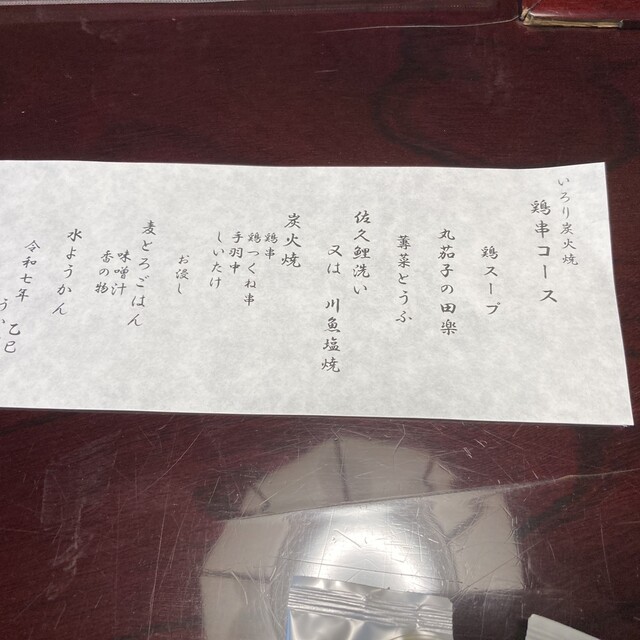 いろり炭火焼
鶏串コース
鶏スープ
丸茄子の田楽
蓴菜とうふ
佐久鯉洗い
又は 川魚塩焼
炭火焼
鶏串
鶏つくね串
手羽中
しいたけ
お浸し
麦とろごはん
味噌汁
香の物
水ようかん
令和七年 乙巳